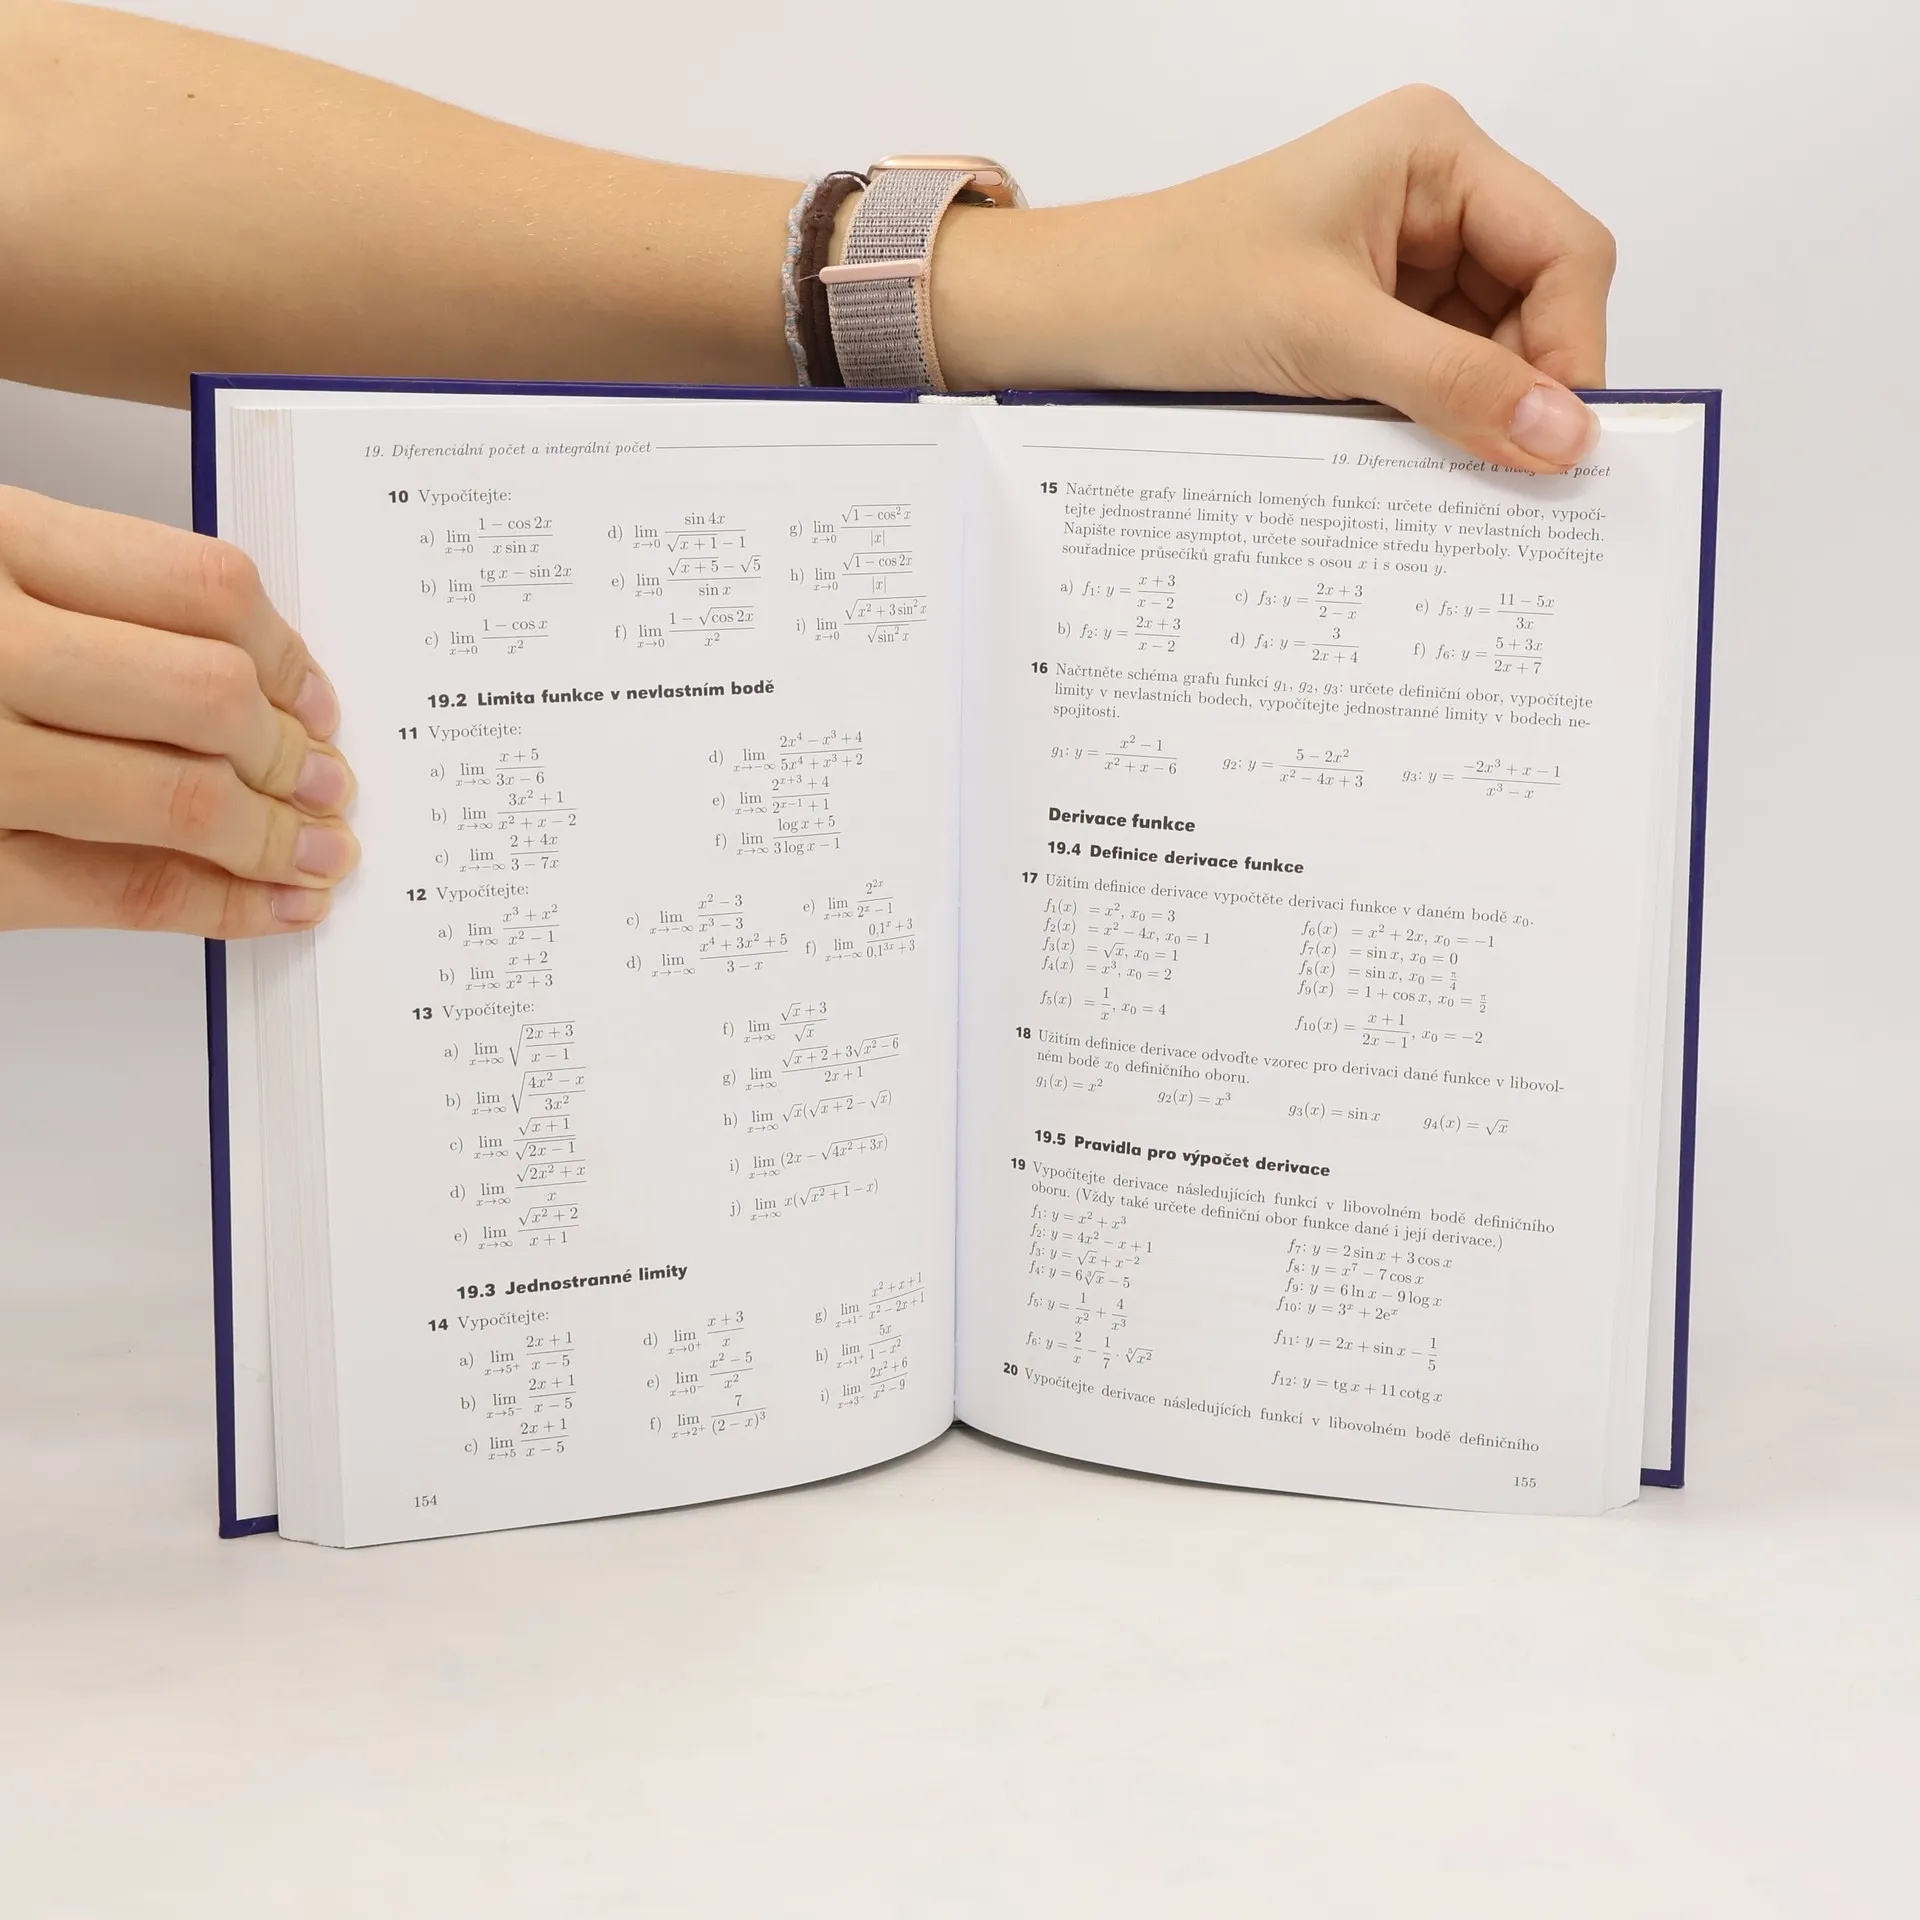 19. Diferenciální počet a integrální počet
10 Vypočítejte:
a) lim x→0 (1 − cos 2x)/(x sin x)
b) lim x→0 (tg x − sin 2x)/x
c) lim x→0 (1 − cos x)/x²
d) lim x→0 (sin 4x)/(√(x + 1) − 1)
e) lim x→0 (√(x + 5) − √5)/(sin x)
f) lim x→0 (1 − √(cos 2x))/x²
g) lim x→0 √(1 − cos² x)/|x|
h) lim x→0 √(1 − cos 2x)/|x|
i) lim x→0 √(x² + 3 sin² x)/√(sin² x)
19.2 Limita funkce v nevlastním bodě
11 Vypočítejte:
a) lim x→∞ (x + 5)/(3x − 6)
b) lim x→∞ (3x² + 1)/(x² + x − 2)
c) lim x→−∞ (2 + 4x)/(3 − 7x)
d) lim x→−∞ (2x⁴ − x³ + 4)/(5x⁴ + x³ + 2)
e) lim x→∞ (2^(x+3) + 4)/(2^(x−1) + 1)
f) lim x→∞ (log x + 5)/(3 log x − 1)
12 Vypočítejte:
a) lim x→∞ (x³ + x²)/(x² − 1)
b) lim x→∞ (x + 2)/(x² + 3)
c) lim x→−∞ (x² − 3)/(x³ − 3)
d) lim x→−∞ (x⁴ + 3x² + 5)/(3 − x)
e) lim x→∞ 2^(2x)/(2^x − 1)
f) lim x→−∞ (0,1^x + 3)/(0,1^(3x) + 3)
13 Vypočítejte:
a) lim x→∞ √((2x + 3)/(x − 1))
b) lim x→∞ √((4x² − x)/(3x²))
c) lim x→∞ √(x + 1)/√(2x − 1)
d) lim x→∞ √(2x² + x)/x
e) lim x→∞ √(x² + 2)/(x + 1)
f) lim x→∞ (√x + 3)/√x
g) lim x→∞ (√(x + 2) + 3√(x² − 6))/(2x + 1)
h) lim x→∞ √x(√(x + 2) − √x)
i) lim x→∞ (2x − √(4x² + 3x))
j) lim x→∞ x(√(x² + 1) − x)
19.3 Jednostranné limity
14 Vypočítejte:
a) lim x→5⁺ (2x + 1)/(x − 5)
b) lim x→5⁻ (2x + 1)/(x − 5)
c) lim x→5 (2x + 1)/(x − 5)
d) lim x→0⁺ (x + 3)/x
e) lim x→0⁻ (x² − 5)/x²
f) lim x→2⁺ 7/(2 − x)³
g) lim x→1⁻ (x² + x + 1)/(x² − 2x + 1)
h) lim x→1⁺ 5x/(1 − x²)
i) lim x→3⁻ (2x² + 6)/(x² − 9)
154
19. Diferenciální počet a počet
15 Načrtněte grafy lineárních lomených funkcí: určete definiční obor, vypočí-
tejte jednostranné limity v bodě nespojitosti, limity v nevlastních bodech.
Napište rovnice asymptot, určete souřadnice středu hyperboly. Vypočítejte
souřadnice průsečíků grafu funkce s osou x i s osou y.
a) f₁: y = (x + 3)/(x − 2)
c) f₃: y = (2x + 3)/(2 − x)
e) f₅: y = (11 − 5x)/(3x)
b) f₂: y = (2x + 3)/(x − 2)
d) f₄: y = 3/(2x + 4)
f) f₆: y = (5 + 3x)/(2x + 7)
16 Načrtněte schéma grafu funkcí g₁, g₂, g₃: určete definiční obor, vypočítejte
limity v nevlastních bodech, vypočítejte jednostranné limity v bodech ne-
spojitosti.
g₁: y = (x² − 1)/(x² + x − 6) g₂: y = (5 − 2x²)/(x² − 4x + 3) g₃: y = (−2x³ + x − 1)/(x³ − x)
Derivace funkce
19.4 Definice derivace funkce
17 Užitím definice derivace vypočtěte derivaci funkce v daném bodě x₀.
f₁(x) = x², x₀ = 3
f₂(x) = x² − 4x, x₀ = 1
f₃(x) = √x, x₀ = 1
f₄(x) = x³, x₀ = 2
f₅(x) = 1/x, x₀ = 4
f₆(x) = x² + 2x, x₀ = −1
f₇(x) = sin x, x₀ = 0
f₈(x) = sin x, x₀ = π/4
f₉(x) = 1 + cos x, x₀ = π/2
f₁₀(x) = (x + 1)/(2x − 1), x₀ = −2
18 Užitím definice derivace odvoďte vzorec pro derivaci dané funkce v libovol-
ném bodě x₀ definičního oboru.
g₁(x) = x² g₂(x) = x³ g₃(x) = sin x g₄(x) = √x
19.5 Pravidla pro výpočet derivace
19 Vypočítejte derivace následujících funkcí v libovolném bodě definičního
oboru. (Vždy také určete definiční obor funkce dané i její derivace.)
f₁: y = x² + x³
f₂: y = 4x² − x + 1
f₃: y = √x + x⁻²
f₄: y = 6∛x − 5
f₅: y = 1/x² + 4/x³
f₆: y = 2/x − 1/7 · ⁵√(x²)
f₇: y = 2 sin x + 3 cos x
f₈: y = x⁷ − 7 cos x
f₉: y = 6 ln x − 9 log x
f₁₀: y = 3^x + 2e^x
f₁₁: y = 2x + sin x − 1/5
f₁₂: y = tg x + 11 cotg x
20 Vypočítejte derivace následujících funkcí v libovolném bodě definičního
155